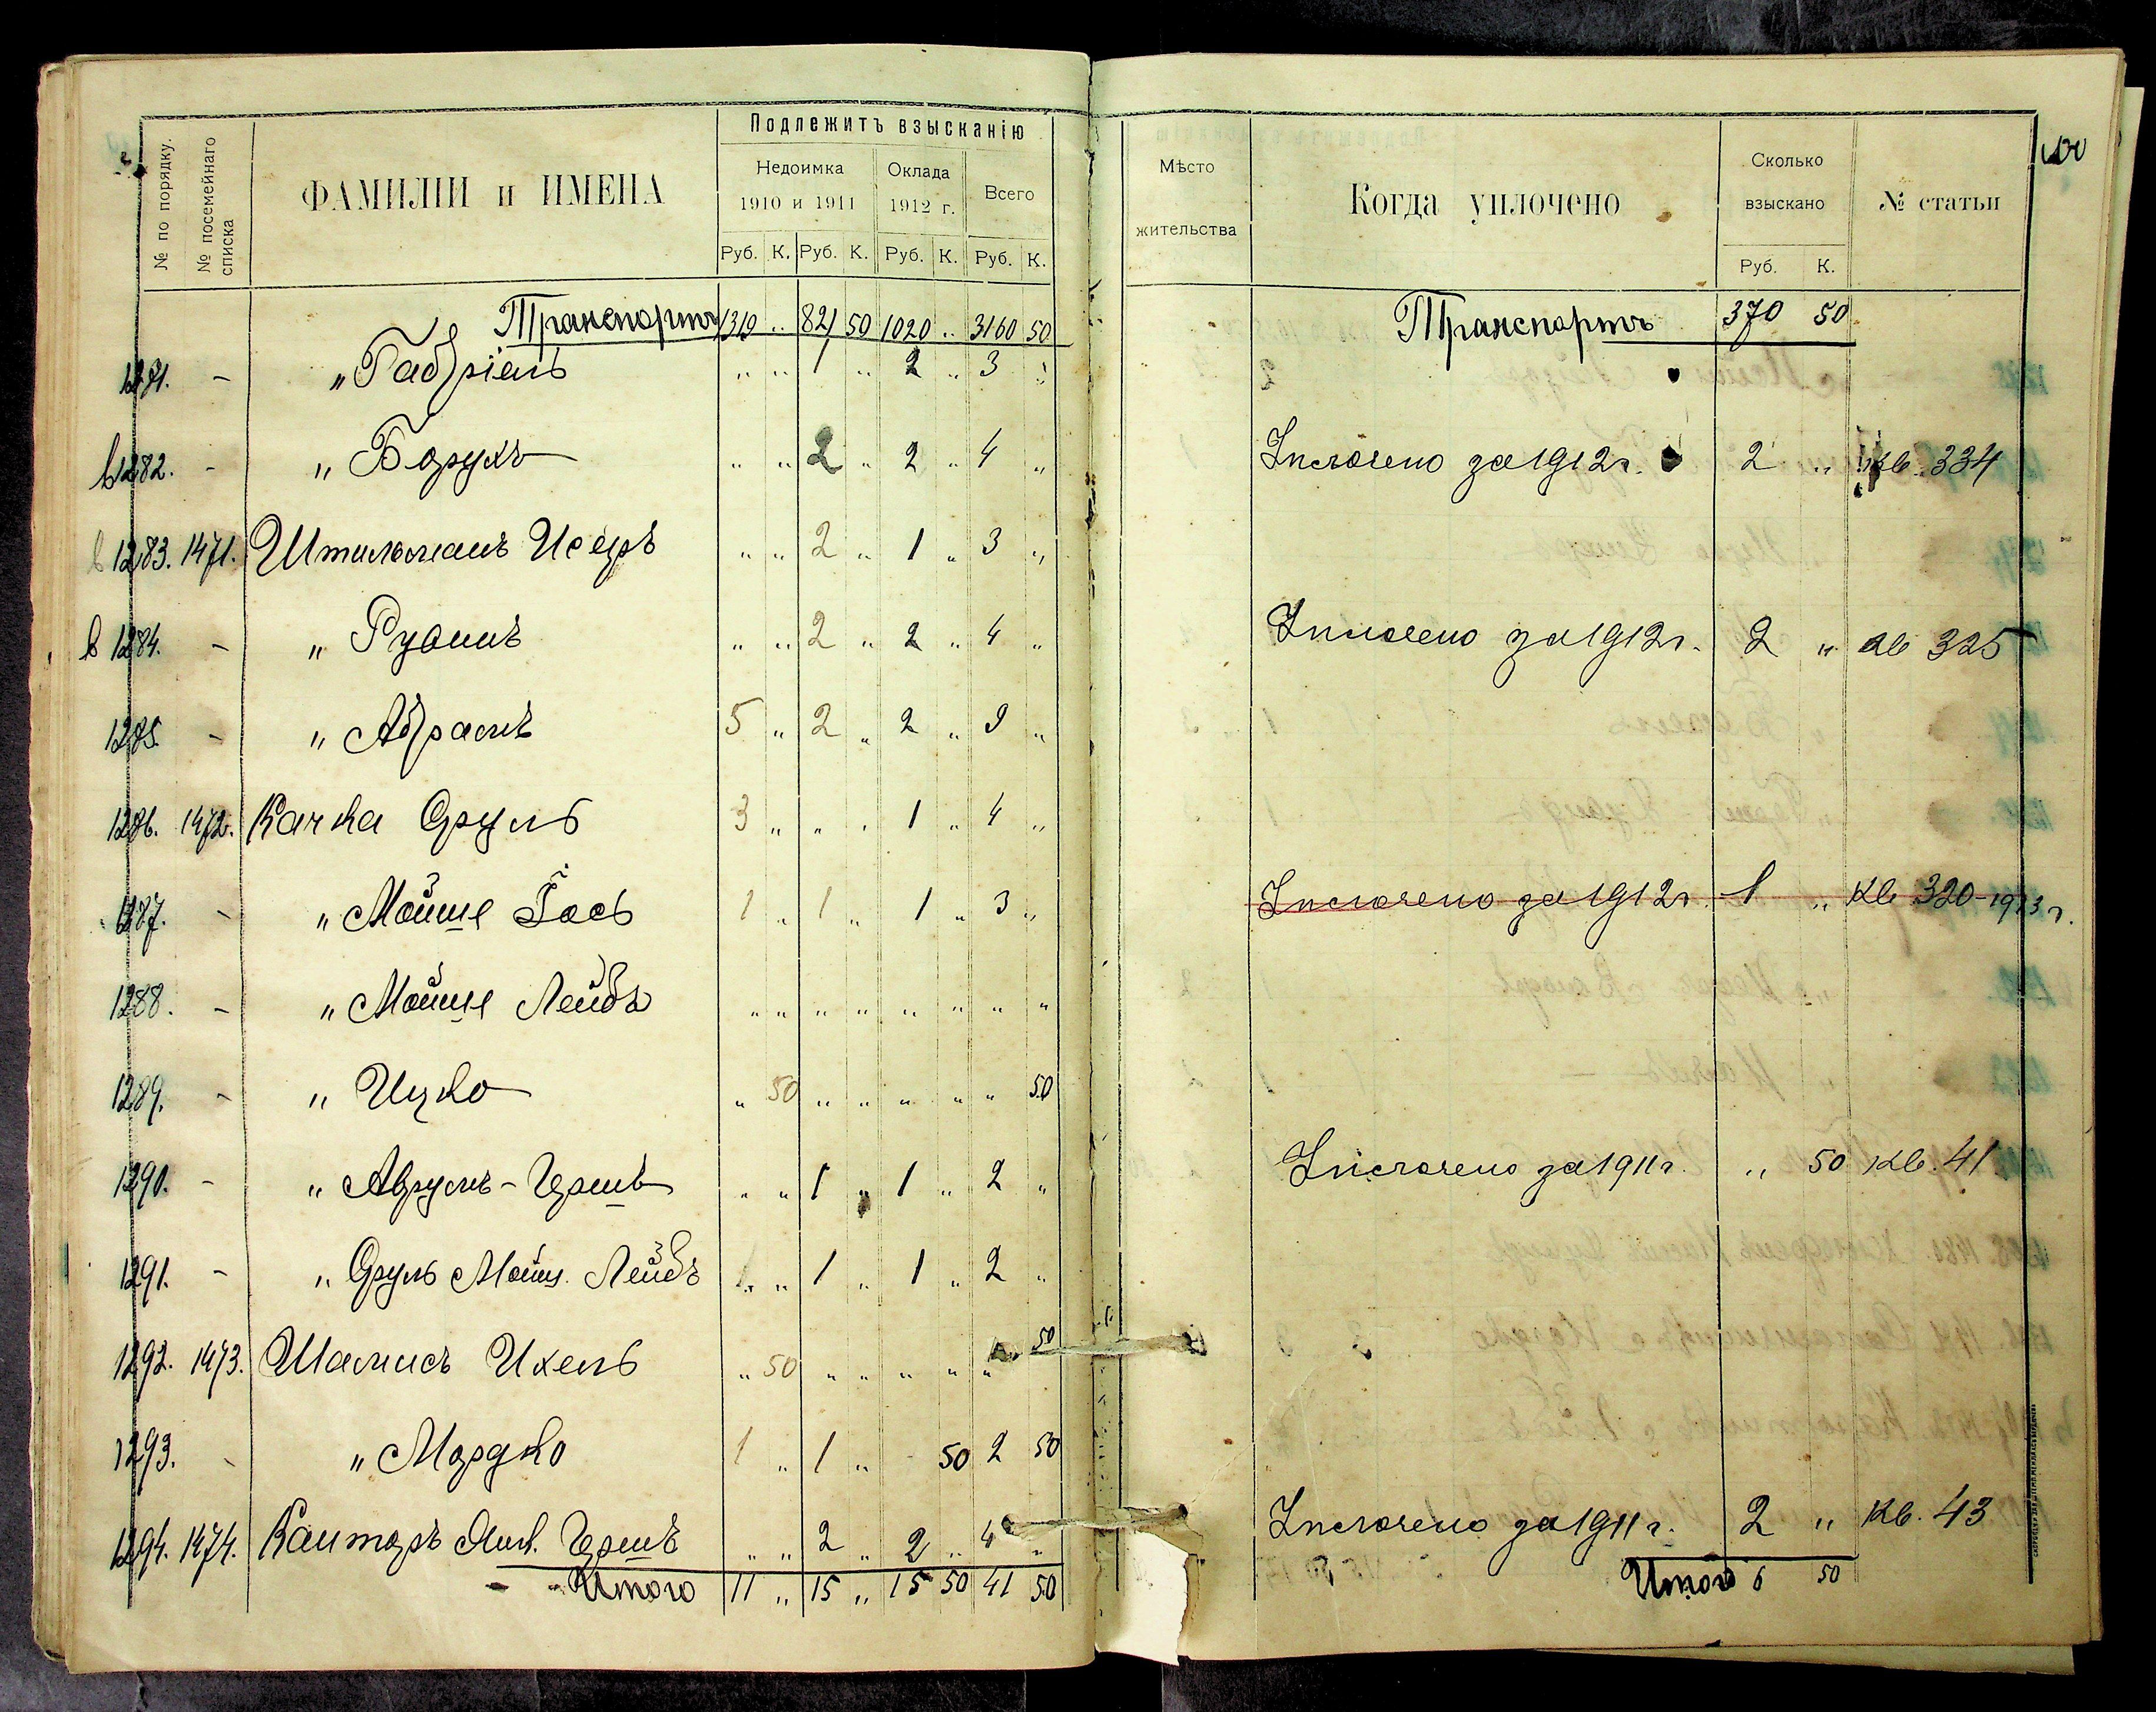 Подлежитъ взысканію
№ по порядку.
№ посемейнаго списка
ФАМИЛІИ и ИМЕНА
Недоимка 1910 и 1911
Оклада 1912 г.
Всего
Руб. К. Руб. К. Руб. К. Руб. К.
Мѣсто жительства
Когда уплочено
Сколько взыскано
Руб. К.
№ статьи
Транспортъ 1319 „ 821 50 1020 „ 3160 50 Транспортъ 370 50
1281. - „ Габріель „ „ 1 „ 2 „ 3 „
в 1282. - „ Борухъ „ „ 2 „ 2 „ 4 „ 1912 г. 2 „ кв. 334
в 1283. 1471. Штильманъ Исеръ „ „ 2 „ 1 „ 3 „
в 1284. - „ Рувинъ „ „ 2 „ 2 „ 4 „ за 1912 г. 2 „ кв 325
1285. - „ Абрамъ 5 „ 2 „ 2 „ 9 „
1286. 1472. Качка Сруль 3 „ „ „ 1 „ 4 „
1287. - „ Мойше Іось 1 „ 1 „ 1 „ 3 „ за 1912 г. 1 „ кв 320-1913 г.
1288. - „ Мойше Лейбъ „ „ „ „ „ „ „ „
1289. - „ Ицко „ 50 „ „ „ „ „ 50
1290. - „ Аврумъ-Гершъ „ „ 1 „ 1 „ 2 „ за 1911 г. „ 50 кв. 41
1291. - „ Сруль Мойш. Лейбъ „ 1 „ 1 „ 2 „
1292. 1473. Шамисъ Ихель „ 50 „ „ „ „ „ 50
1293. - „ Мордко 1 „ 1 „ - 50 2 50
1294. 1474. Канторъ Янк. Гершъ „ „ 2 „ 2 „ 4 „ за 1911 г. 2 „ кв. 43
Итого 11 „ 15 „ 15 50 41 50 Итого 6 50